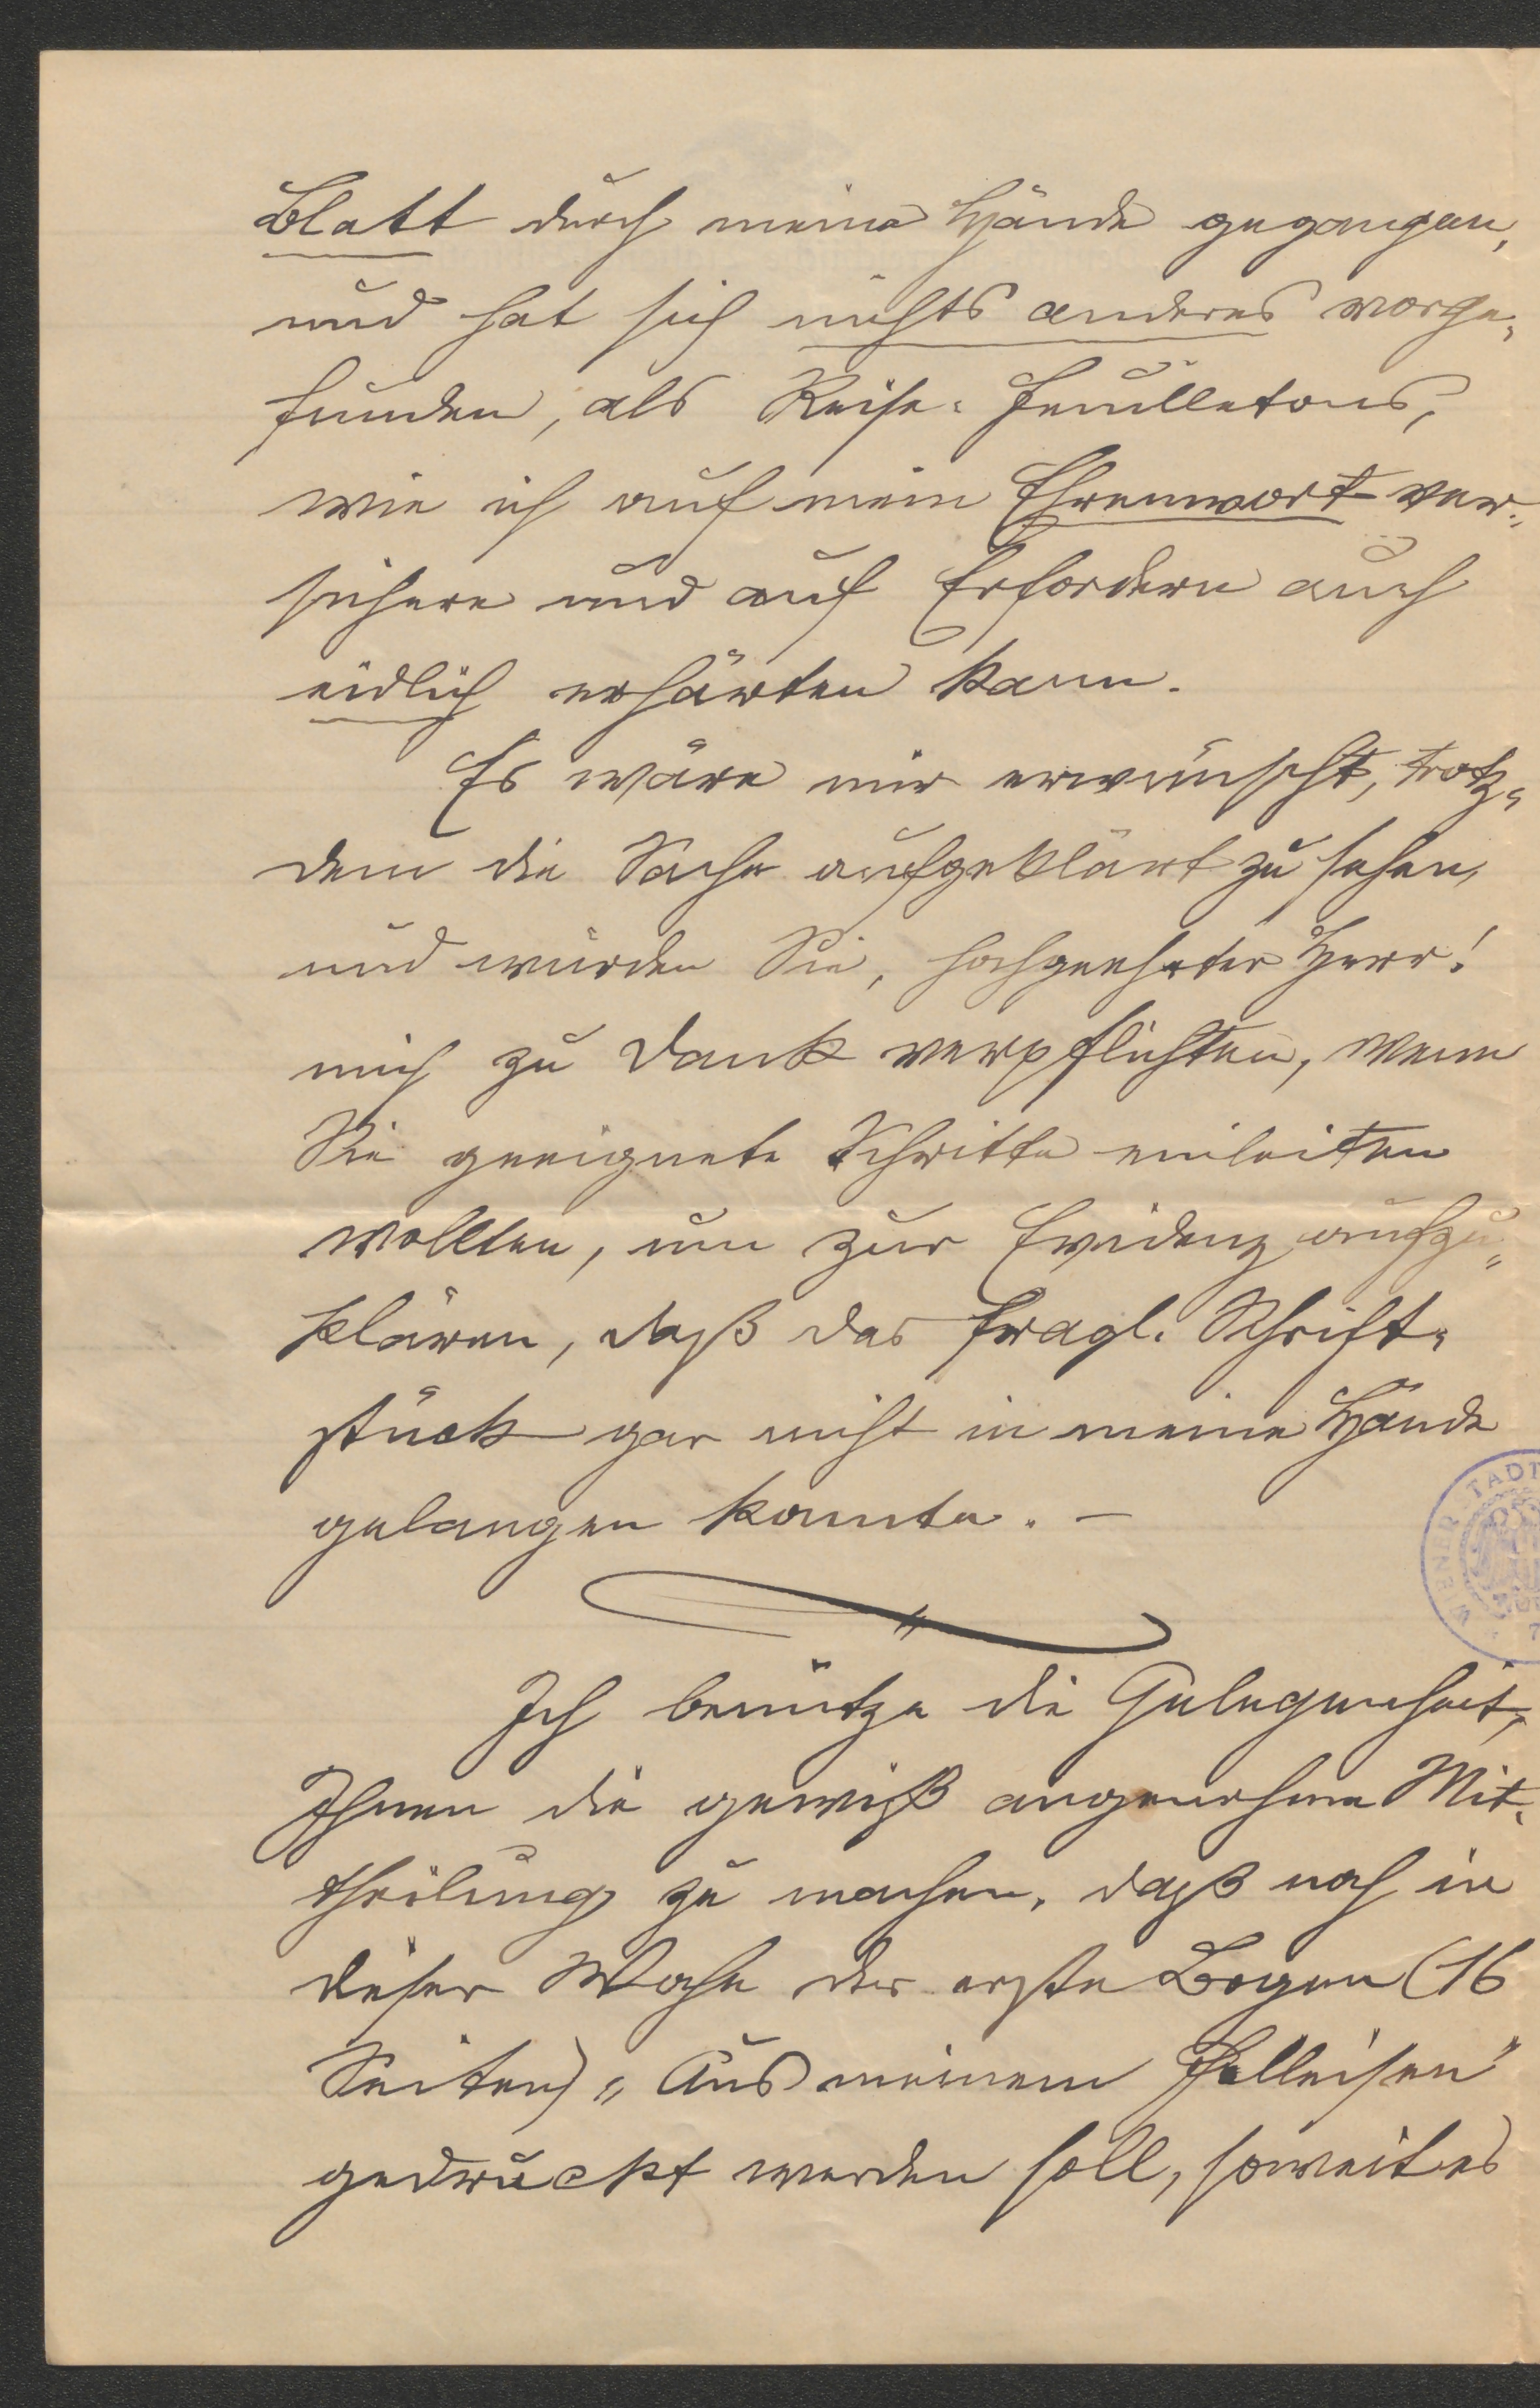 Blatt durch meine Hände gegangen,
und hat sich nichts anderes vorge-
funden, als Reise-Feuilletons,
wie ich auf mein Ehrenwort ver-
sichere und auf Erfordern auch
eidlich erhärten kann.
Es wäre mir erwünscht, trotz-
dem die Sache aufgeklärt zu sehen,
und würden Sie, hochgeehrter Herr!
mich zu Dank verpflichten, wenn
Sie geeignete Schritte einleiten
wollten, um zur Evidenz aufzu-
klären, daß das fragl. Schrift-
stück gar nicht in meine Hände
gelangen konnte. —
WIENER STADT
Ich benütze die Gelegenheit,
Ihnen die gewiß angenehme Mit-
theilung zu machen, daß noch in
dieser Woche der erste Bogen (16
Seiten) „Aus meinem Felleisen"
gedruckt werden soll, soweit es